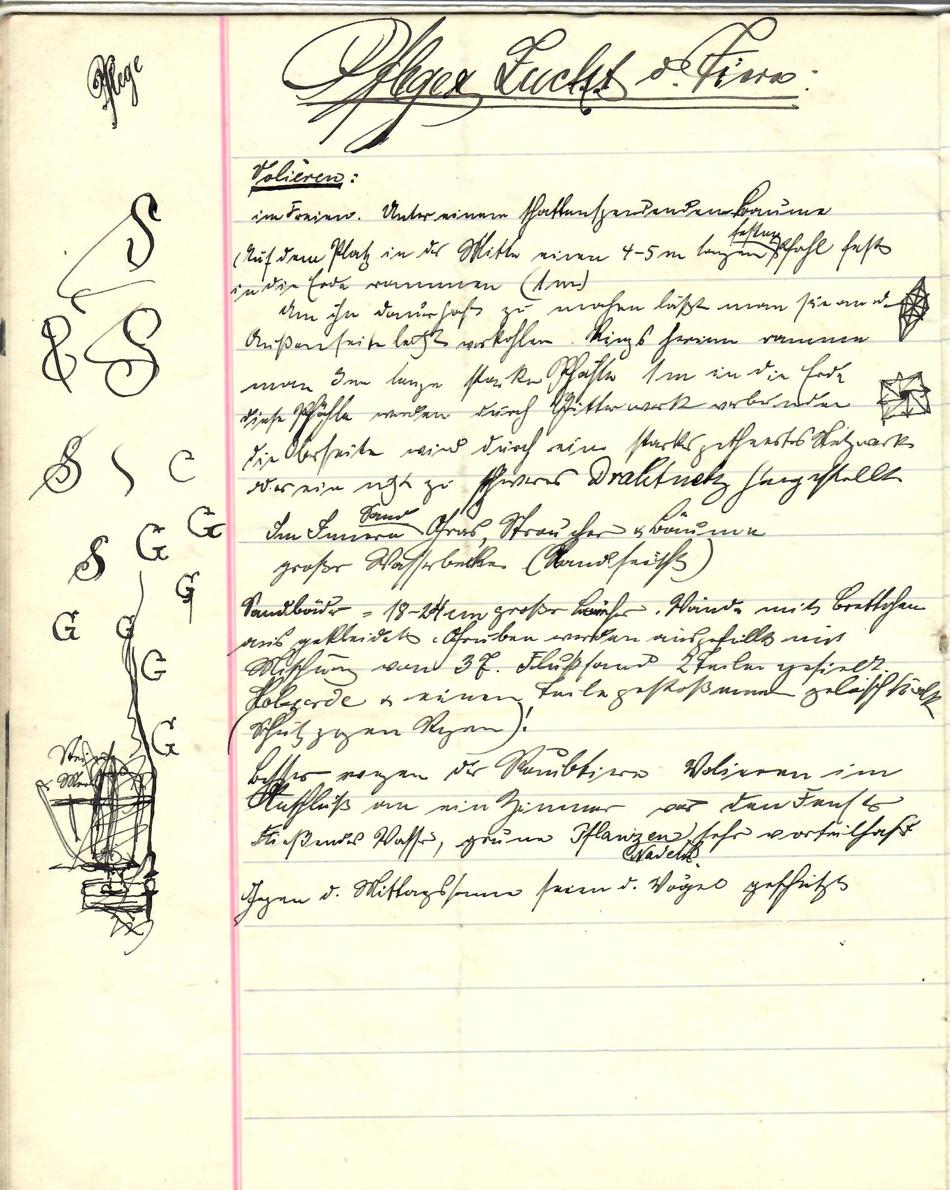 Pflege
Pflege & Zucht d. Tiere:
Volieren:
im Freien. Unter einem schattenspendenden Baume
(Auf dem Platz in der Mitte einen 4-5 m langen festen Pfahl fest
in die Erde rammen (1 m)
Um ihn dauerhaft zu machen läßt man sie an d.
Außenseite leicht verkohlen. Rings herum ramme
man 3 m lange starke Pfähle 1 m in die Erde
diese Pfähle werden durch Gitterwerk verbunden
die Oberseite wird durch ein starkes geteertes Netzwerk
oder ein nicht zu schweres Drahtnetz hergestellt
Im Innern Sand Gras, Sträucher & Bäume
großes Wasserbecken (Randseicht)
Sandbäder = 18-24 cm große Löcher. Wände mit Brettchen
ausgekleidet. Gruben werden ausgefüllt mit
Mischung von 3 T. Flußsand 2 Teilen gesiebt.
Holzerde & einem Teile gestoßenem gelöscht Kalk
(Schutz gegen Regen)!
Besser wegen der Raubtiere Volieren im
Anschluß an ein Zimmer vor dem Fenster
Fließendes Wasser, grüne Pflanzen sehr vorteilhaft
(Nadelh.
Gegen d. Mittagssonne seien d. Vögel geschützt
S
S S
S C
G
S G
G
G G
G
G